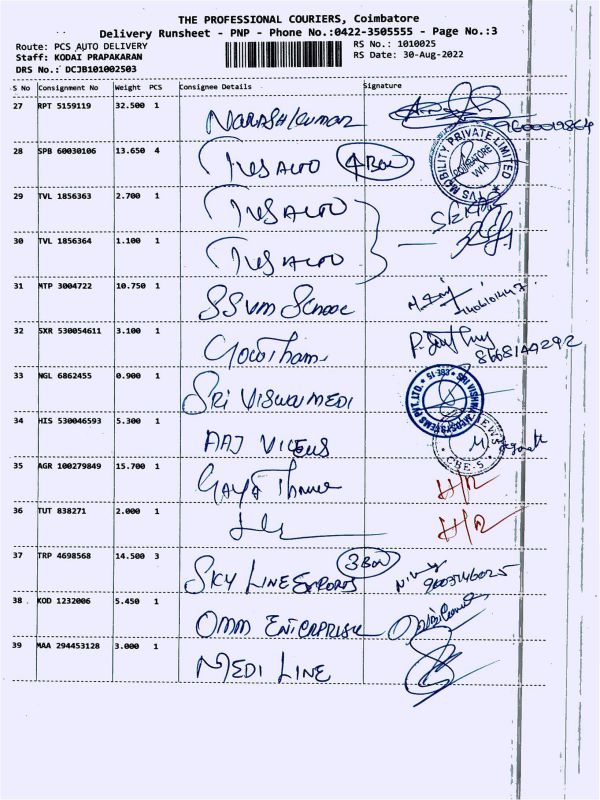 THE PROFESSIONAL COURIERS, Coimbatore
Delivery Runsheet - PNP - Phone No.:0422-3505555 - Page No.:3
Route: PCS AUTO DELIVERY
RS No.: 1010025
Staff: KODAI PRAPAKARAN
RS Date: 30-Aug-2022
DRS No.: DCJB101002503
S No Consignment No Weight PCS Consignee Details Signature
27 RPT 5159119 32.500 1
28 SPB 60030106 13.650 4 TVS AUTO 4 Box
TVS MOBILITY PRIVATE LIMITED
COIMBATORE
WH
29 TVL 1856363 2.700 1 TVS AUTO
30 TVL 1856364 1.100 1 TVS AUTO
31 MTP 3004722 10.750 1 SSVM School
32 SXR 530054611 3.100 1 Gowtham
8668144292
33 NGL 6862455 0.900 1 SRI VISWA MEDI
34 HIS 530046593 5.300 1
CBE-S
35 AGR 100279849 15.700 1
36 TUT 838271 2.000 1
37 TRP 4698568 14.500 3 SKY LINE EXPORTS 3 Box
38 KOD 1232006 5.450 1 OMM ENTERPRISE
39 MAA 294453128 3.000 1 MEDI LINE